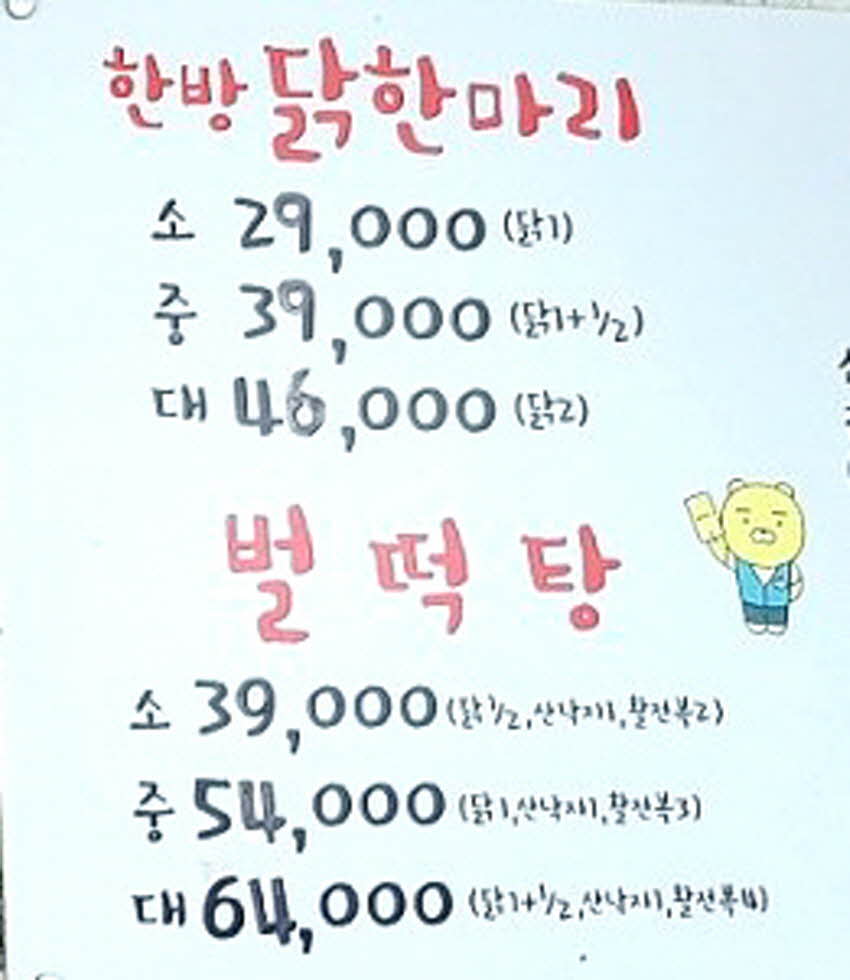 한방 닭한마리
소 29,000 (닭1)
중 39,000 (닭1+1/2)
대 46,000 (닭2)
벌 떡 탕
소 39,000 (닭1/2,산낙지1,활전복2)
중 54,000 (닭1,산낙지1,활전복3)
대 64,000 (닭1+1/2,산낙지1,활전복4)